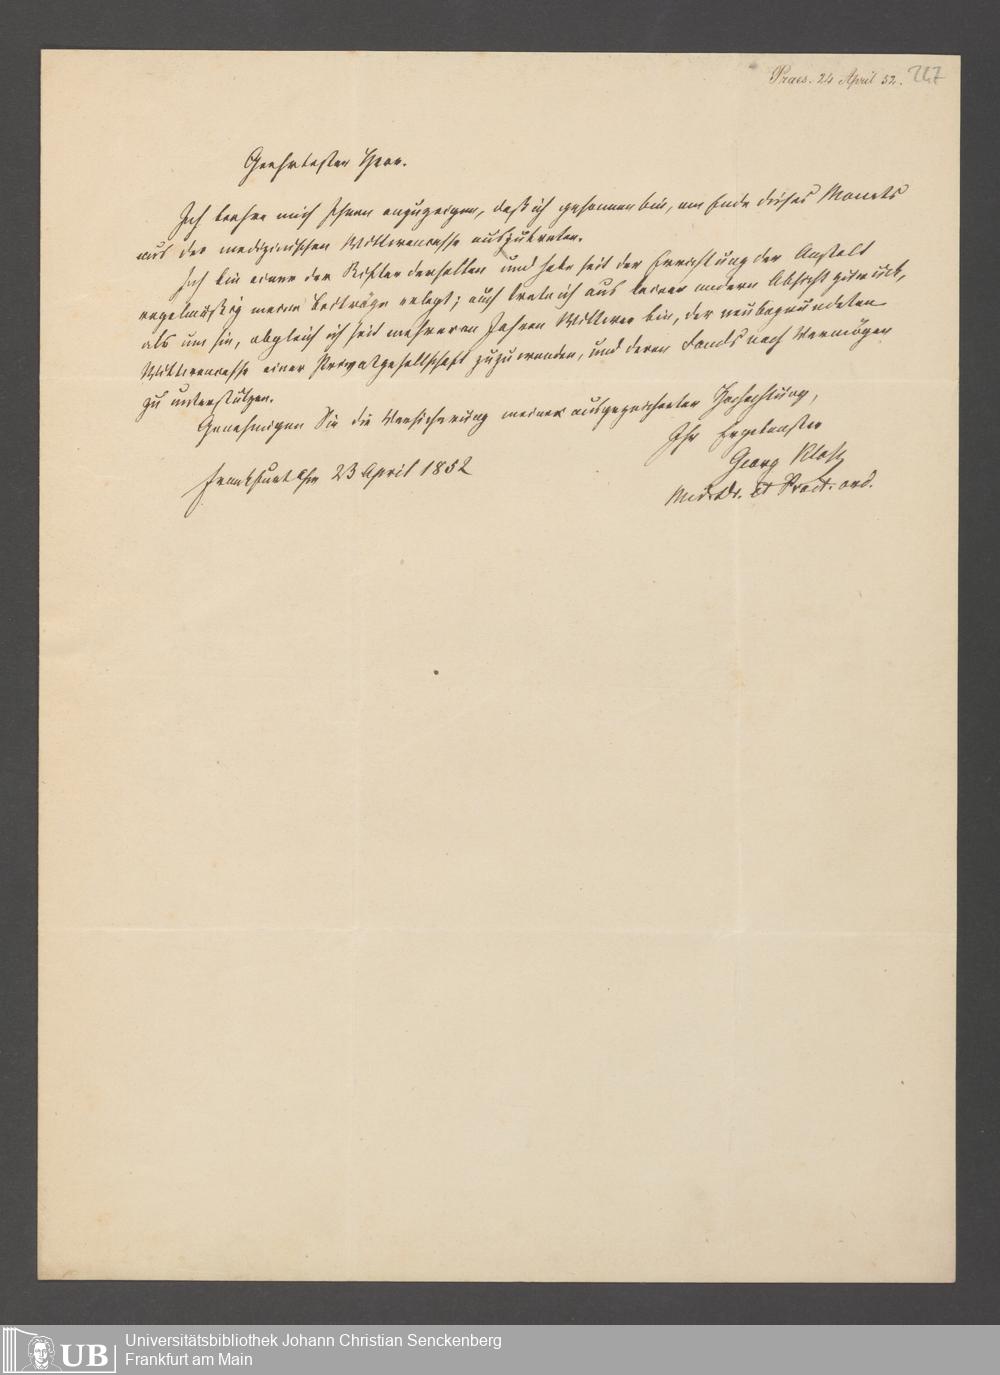 Praes. 24 April 52. 227
Geehrtester Herr.
Ich beehre mich Ihnen anzuzeigen, daß ich gesonnen bin, am Ende dieses Monats
aus der medizinischen Wittwencasse auszutreten.
Ich bin einer der Stifter derselben und habe seit der Errichtung der Anstalt
regelmäßig meine Beiträge erlegt; auch trete ich aus keiner andern Absicht zurück,
als um sie, obgleich ich seit mehreren Jahren Wittwer bin, der neubegründeten
Wittwencasse einer Privatgesellschaft zuzuwenden, und deren Fonds nach Vermögen
zu unterstützen.
Genehmigen Sie die Versicherung meiner ausgezeichneten Hochachtung,
Ihr Ergebenster
Georg Kloß
Med. Dr. et Pract. ord.
Frankfurt 23 April 1852
UB
Universitätsbibliothek Johann Christian Senckenberg
Frankfurt am Main